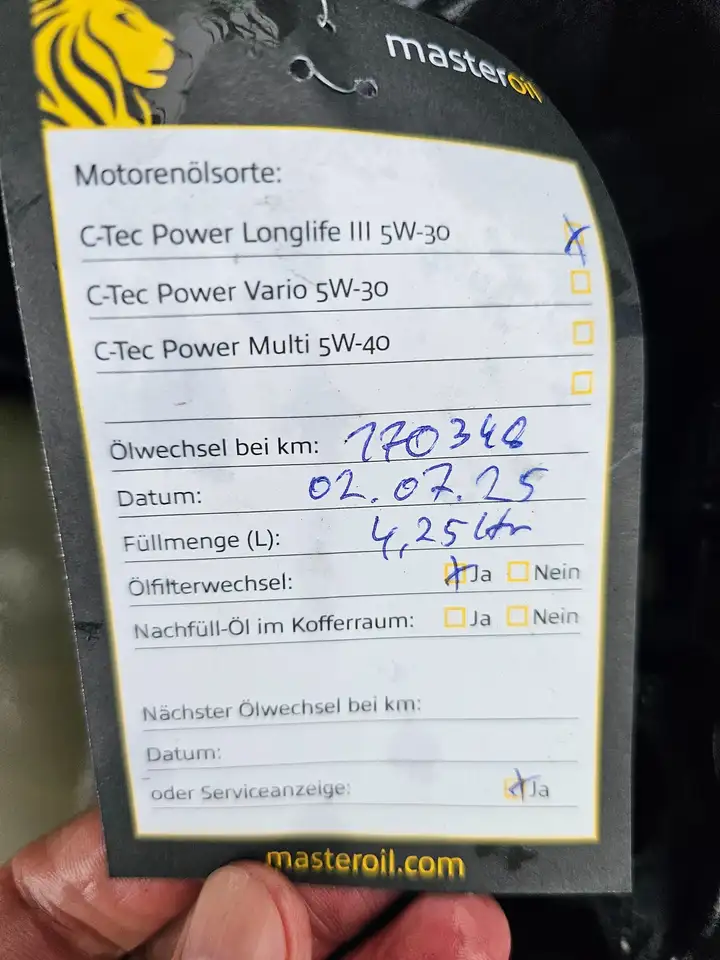 masteroil
Motorenölsorte:
C-Tec Power Longlife III 5W-30
C-Tec Power Vario 5W-30
C-Tec Power Multi 5W-40
Ölwechsel bei km: 170348
Datum: 02.07.25
Füllmenge (L): 4,25 Ltr
Ölfilterwechsel: Ja Nein
Nachfüll-Öl im Kofferraum: Ja Nein
Nächster Ölwechsel bei km:
Datum:
oder Serviceanzeige: Ja
masteroil.com